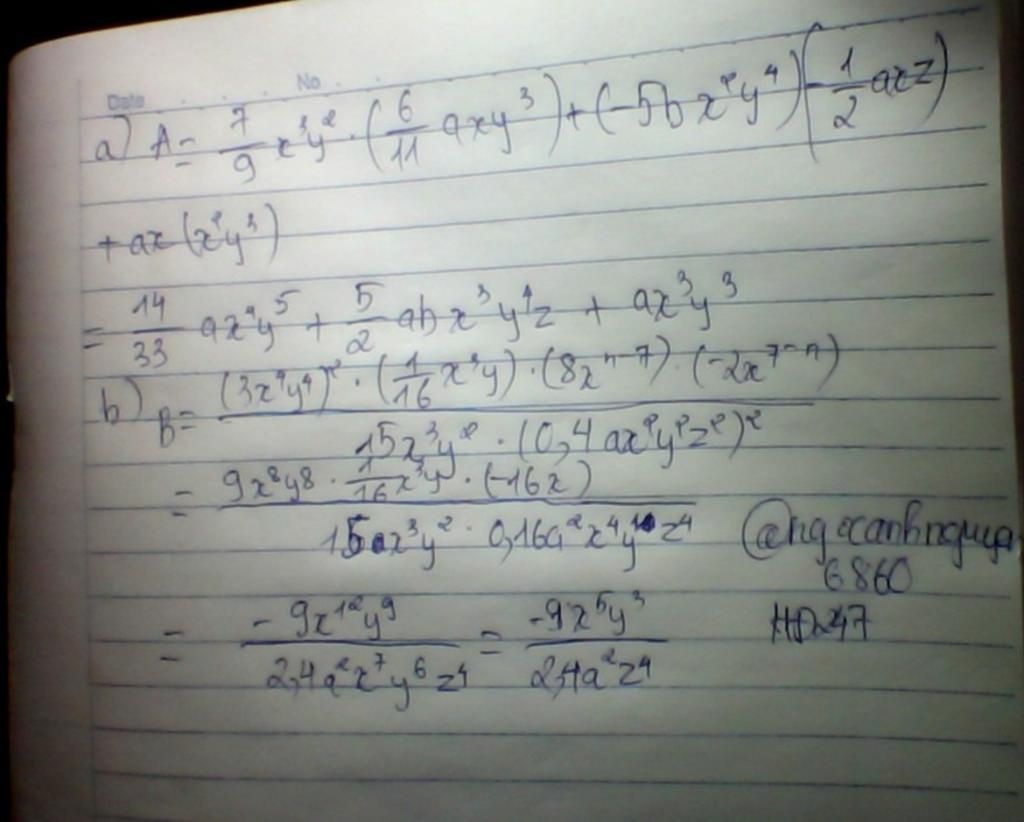 Date No
a) A = 7/9 x³y² · (6/11 axy³) + (-5bx²y⁴)(-1/2 axz)
+ ax(x²y³)
= 14/33 ax⁴y⁵ + 5/2 abx³y⁴z + ax³y³
b) B = (3x⁴y⁴)² · (1/16 x³y) · (8xⁿ⁻⁷) · (-2x⁷⁻ⁿ) / 15x³y² · (0,4ax²y²z²)²
= 9x⁸y⁸ · 1/16 x³y · (-16x) / 15x³y² · 0,16a²x⁴y⁴z⁴
= -9x¹²y⁹ / 2,4a²x⁷y⁶z⁴ = -9x⁵y³ / 2,4a²z⁴
6860